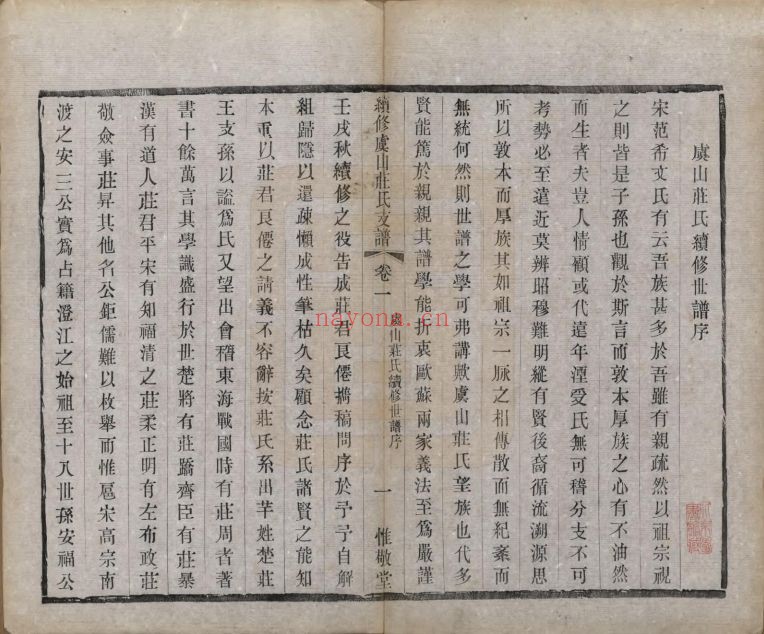 虞山莊氏續修世譜序
宋范希文氏有云吾族甚多於吾雖有親疏然以祖宗視
之則皆是子孫也觀於斯言而敦本厚族之心有不油然
而生者夫豈人情顧或代遠年湮受氏無可稽分支不可
考勢必至遠近莫辨昭穆難明縱有賢後裔循流溯源思
所以敦本而厚族其如祖宗一脈之相傳散而無紀紊而
無統何然則世譜之學可弗講歟虞山莊氏望族也代多
賢能篤於親親其譜學能折衷歐蘇兩家義法至爲嚴謹
續修虞山莊氏支譜
卷一
虞山莊氏續修世譜序
一
惟敬堂
壬戌秋續修之役告成莊君良僊攜稿問序於予予自解
組歸隱以還疎懶成性筆枯久矣顧念莊氏諸賢之能知
本重以莊君良僊之請義不容辭按莊氏系出芉姓楚莊
王支孫以謚爲氏又望出會稽東海戰國時有莊周者著
書十餘萬言其學識盛行於世楚將有莊蹻齊臣有莊暴
漢有道人莊君平宋有知福清之莊柔正明有左布政莊
敬僉事莊昇其他名公鉅儒難以枚舉而惟扈宋高宗南
渡之安三公實爲占籍澄江之始祖至十八世孫安福公
nayona.cn